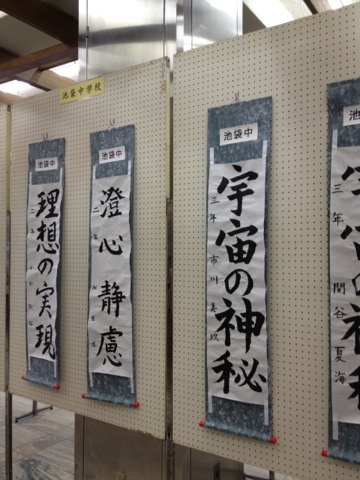 池袋中学校
池袋中
理想の実現
池袋中
澄心静慮
池袋中
宇宙の神秘
三年 市川美玖
関谷夏海